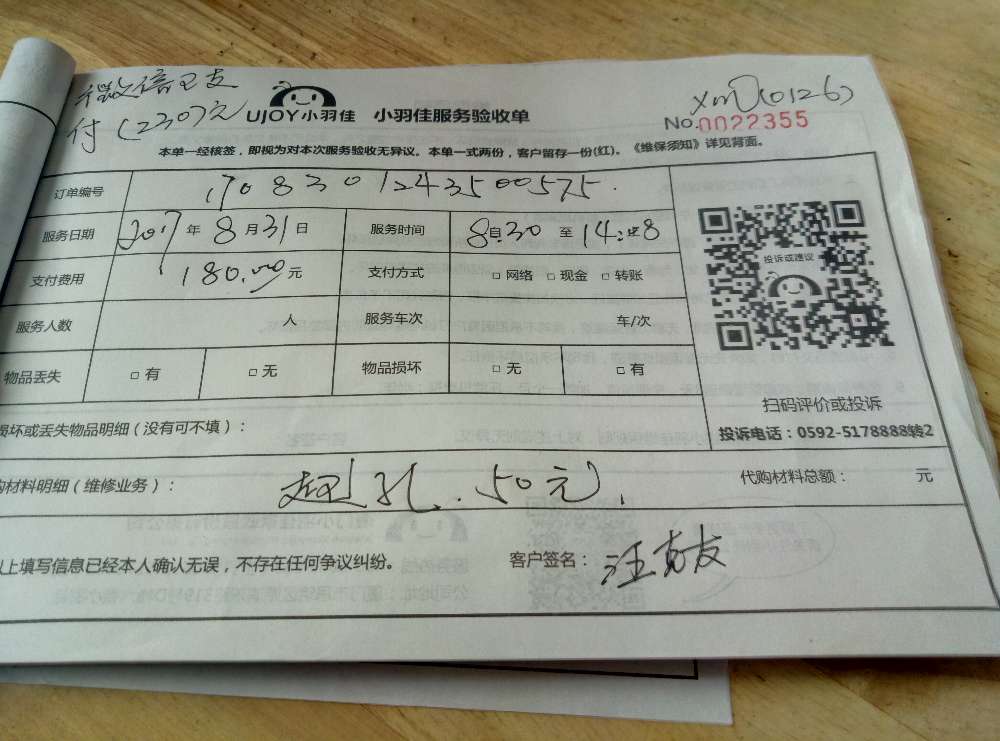 微信已支
付(230)元
UJOY小羽佳 小羽佳服务验收单
xm(0126)
No.0022355
本单一经核签，即视为对本次服务验收无异议。本单一式两份，客户留存一份(红)。《维保须知》详见背面。
订单编号 1708301243500575.
服务日期 2017年8月31日 服务时间 8:30至14:
支付费用 180.00元 支付方式 □网络 □现金 □转账
服务人数 人 服务车次 车/次
物品丢失 □有 □无 物品损坏 □无 □有
投诉或建议
扫码评价或投诉
投诉电话：0592-5178888转2
损坏或丢失物品明细（没有可不填）：
购材料明细（维修业务）： 孔.50元. 代购材料总额： 元
以上填写信息已经本人确认无误，不存在任何争议纠纷。 客户签名：汪友